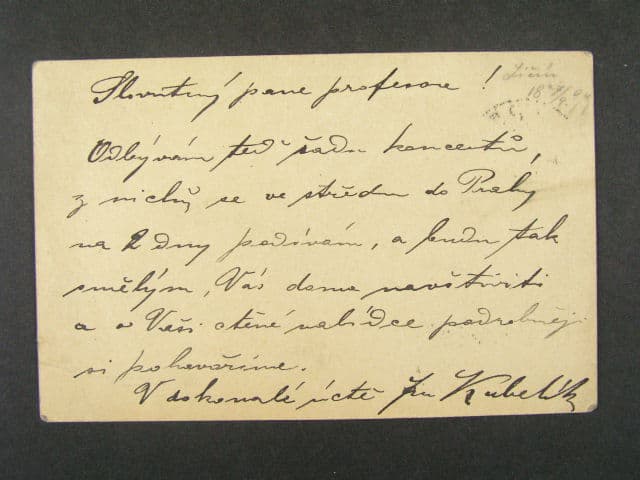 Slovutný pane profesore !
Odbývám teď řadu koncertů,
z nichž se ve středu do Prahy
na 2 dny podívám, a budu tak
smělým, Vás doma navštíviti
a o Vaši ctěné nabídce podrobněji
si pohovoříme.
V dokonalé úctě Jan Kubelík